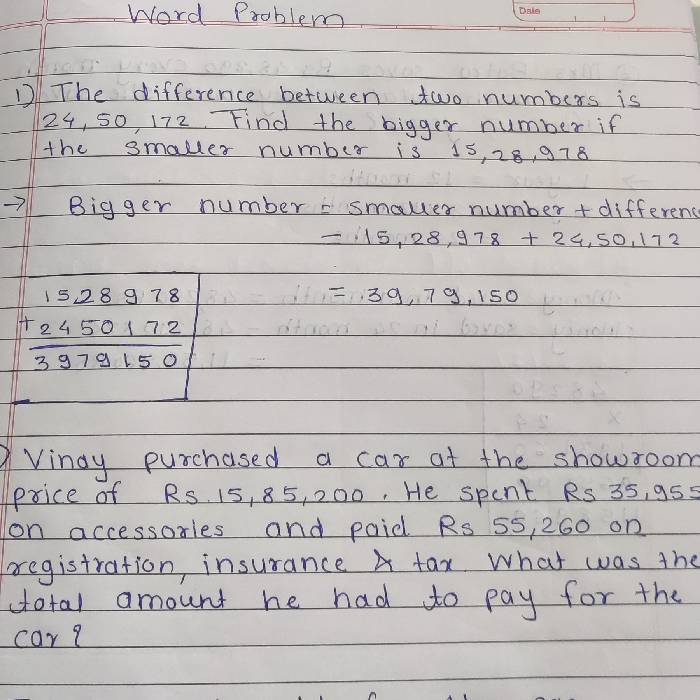 Word Problem
Date
1) The difference between two numbers is
24,50,172. Find the bigger number if
the smaller number is 15,28,978
→ Bigger number = smaller number + differenc
= 15,28,978 + 24,50,172
= 39,79,150
15,28978
+2450172
3979150
) Vinay purchased a car at the showroom
price of Rs. 15,85,200. He spent Rs 35,955
on accessories and paid Rs 55,260 on
registration, insurance & tax. What was the
total amount he had to pay for the
car?